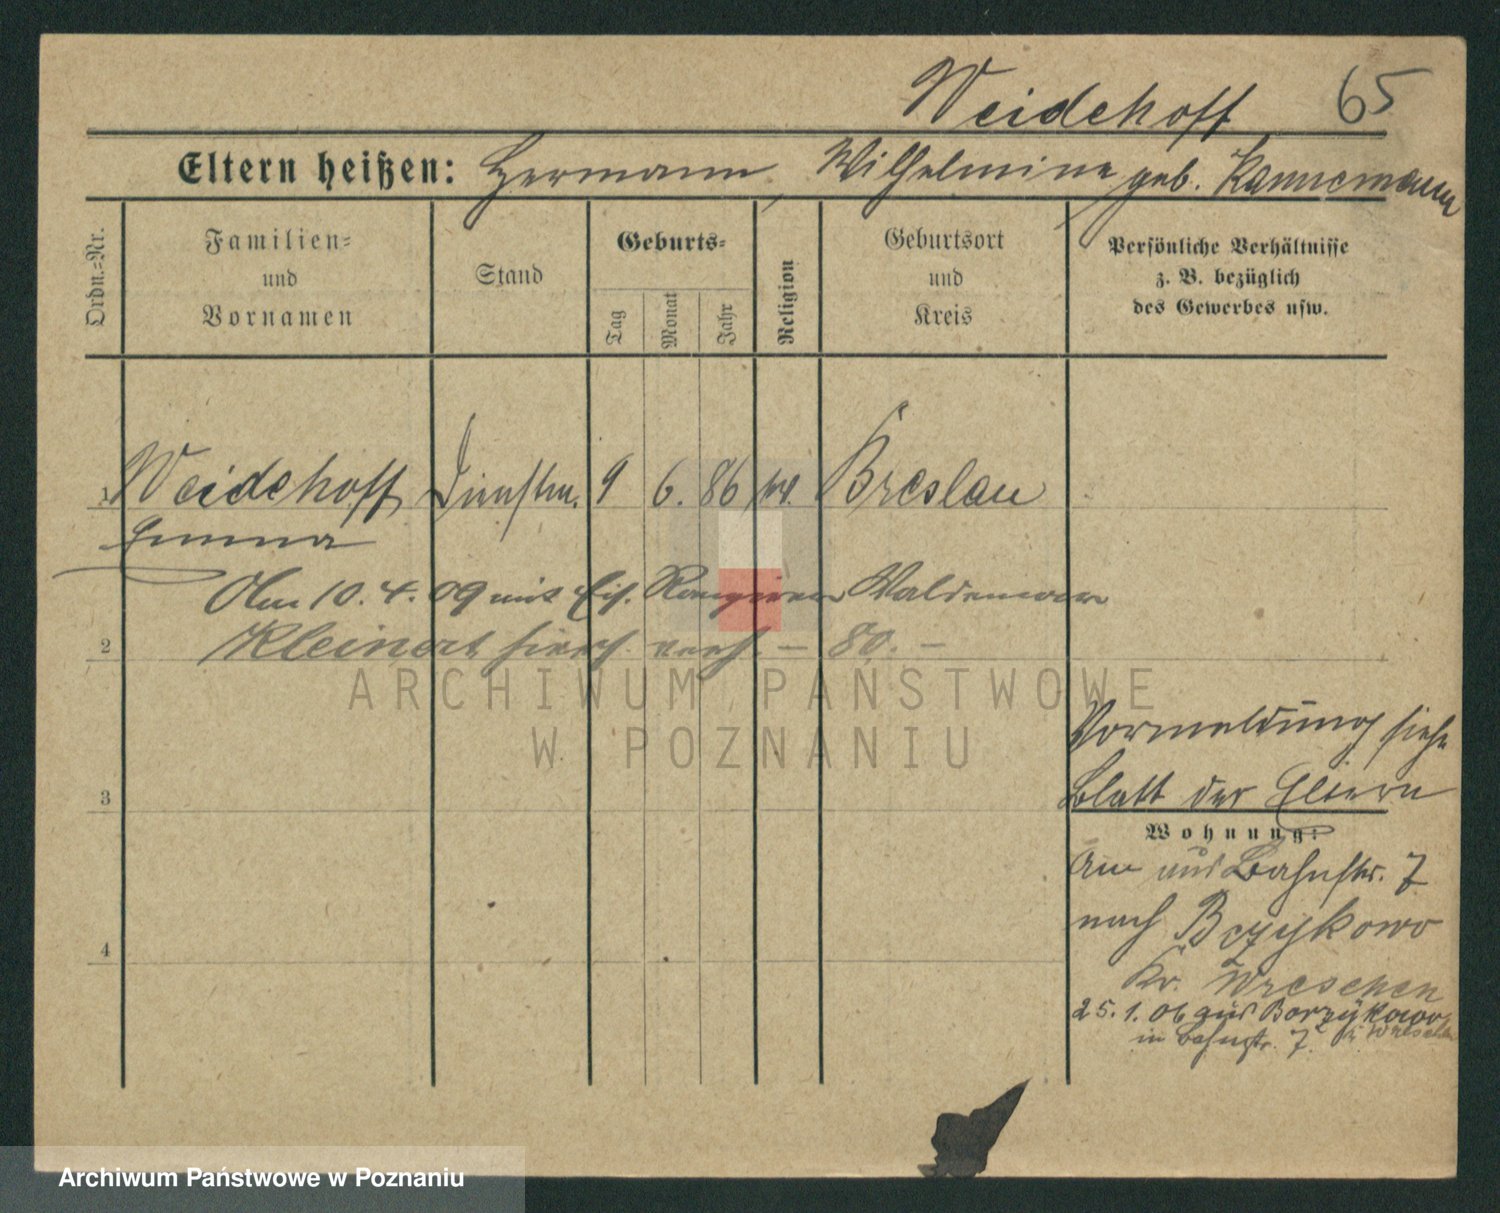 Weidehoff 65
Eltern heißen: Hermann, Wilhelmine geb. Kannemann
Ordn.-Nr.
Familien- und Vornamen
Stand
Geburts-
Tag
Monat
Jahr
Religion
Geburtsort und Kreis
Persönliche Verhältnisse
z. B. bezüglich
des Gewerbes usw.
1 Weidehoff Dienstm. 9 6. 86 Breslau
Emma
Am 10. 4. 09 mit Eis. Rangierer Waldemar
2 Kleinert hier verh. – 80. –
ARCHIWUM PAŃSTWOWE
W POZNANIU
Vormeldung siehe
3 Blatt der Eltern
Wohnung:
aus Bahnstr. 7
nach Bczykowo
4
Kr. Wreschen
25.1.06 aus Borzykowo
Kr Wreschen
in Bahnstr. 7.
Archiwum Państwowe w Poznaniu